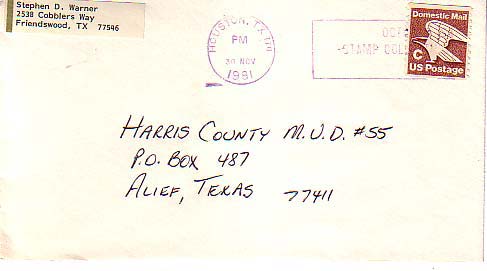 Stephen D. Warner
2538 Cobblers Way
Friendswood, TX 77546
HOUSTON, TX
PM
30 NOV
1981
OCT
-STAMP COL
Domestic Mail
C
US Postage
HARRIS COUNTY M.U.D. #55
P.O. BOX 487
ALIEF, TEXAS 77411